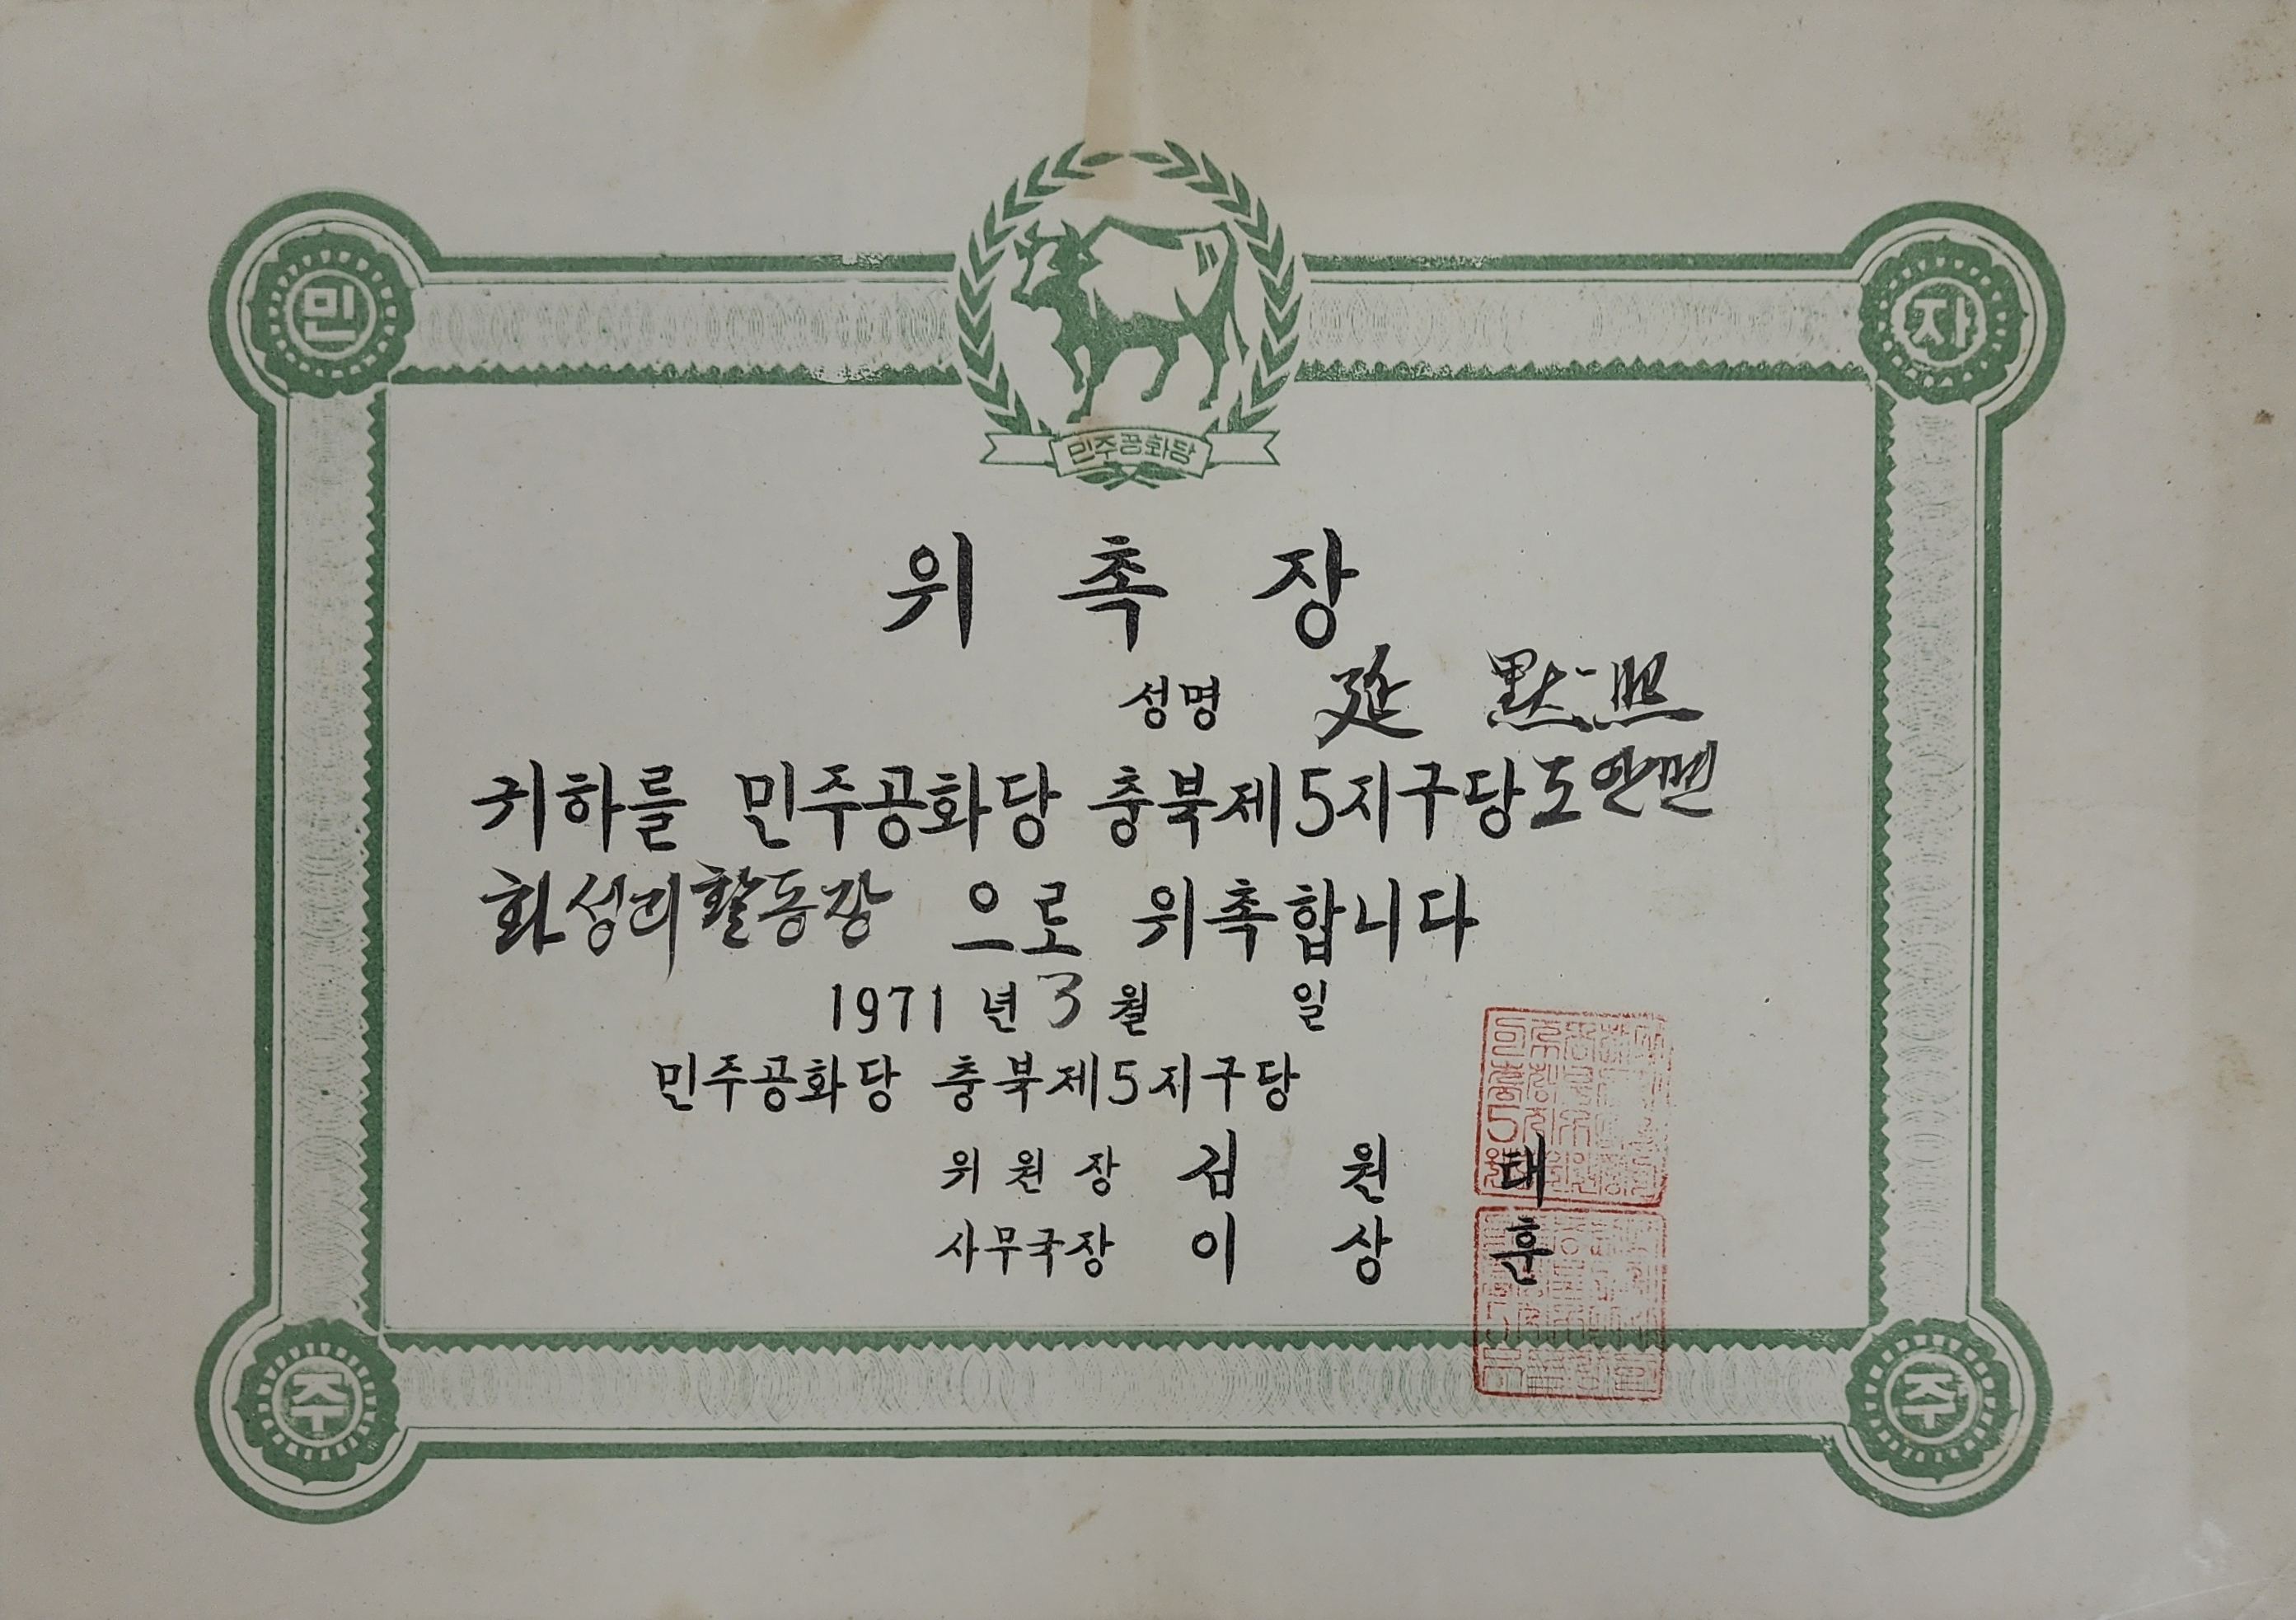 민 자
민주공화당
위 촉 장
성명 延 黙熙
귀하를 민주공화당 충북제5지구당도안면
화성리활동장 으로 위촉합니다
1971 년 3 월 일
민주공화당 충북제5지구당
위 원 장 김 원 태
사무국장 이 상 훈
주 주